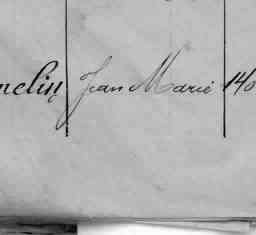 melin Jean Marie 140